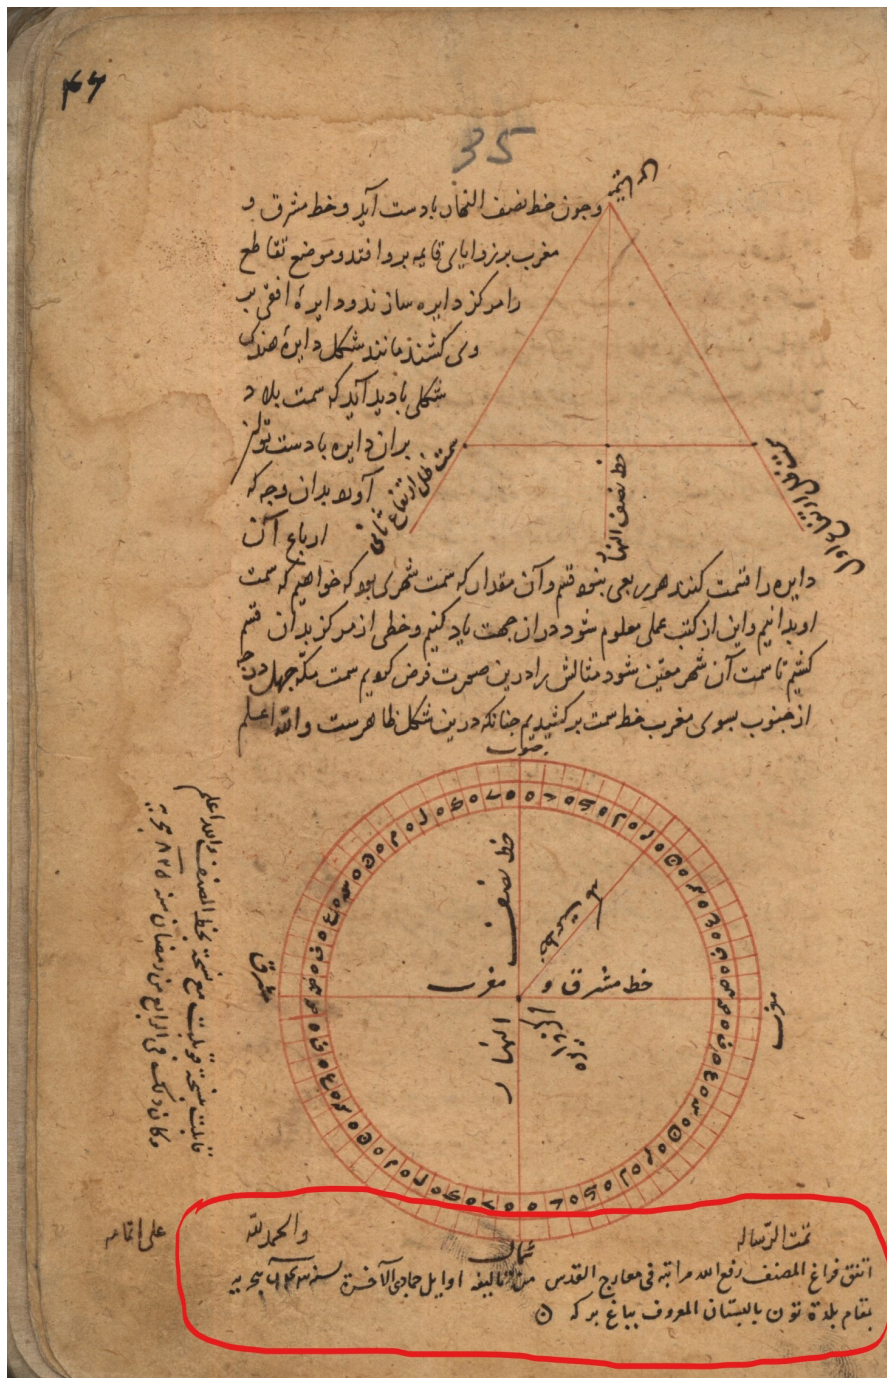 ۴۶
35
الدائرة
وچون خط نصف النهار بادست آید و خط مشرق و
مغرب بر زوایای قایمه برو افتد و موضع تقاطع
را مرکز دایره سازند و دایرۀ افقی بر
وی کشند مانند شکل دایرۀ هندی
شکلی بادید آید که سمت بلاد
بران دایره بادست توان
آورد بدان وجه که
ارباع آن
سمت ظل ارتفاع ثانی
خط نصف النهار
سمت ظل ارتفاع اول
دایره را قسمت کنند هر ربعی بنود قسم و آن مقدار که سمت شهری بود که خواهیم که سمت
او بدانیم و این از کتب عملی معلوم شود دران جهت یاد کنیم و خطی از مرکز بدان قسم
کشیم تا سمت آن شهر معین شود مثالش را درین صورت فرض کردیم سمت مکه چهل درجه
از جنوب بسوی مغرب خط سمت بر کشیدیم چنانکه درین شکل ظاهرست والله اعلم
جنوب
خط نصف
النهار
خط مشرق و مغرب
مرکز دایره
مشرق
مغرب
شمال
قابلت نسخة قوبلت مع نسخة بخط المصنف والله اعلم
وكان ذلك فی الرابع من رمضان سنه ۸۲۵ هجرية
تمت الرساله والحمد لله علی اتمامه
اتفق فراغ المصنف رفع الله مراتبه فی معارج القدس من تالیفه اوایل جمادی الآخرة سنه هجریه
بمقام بلدة تون بالبستان المعروف بباغ برکه